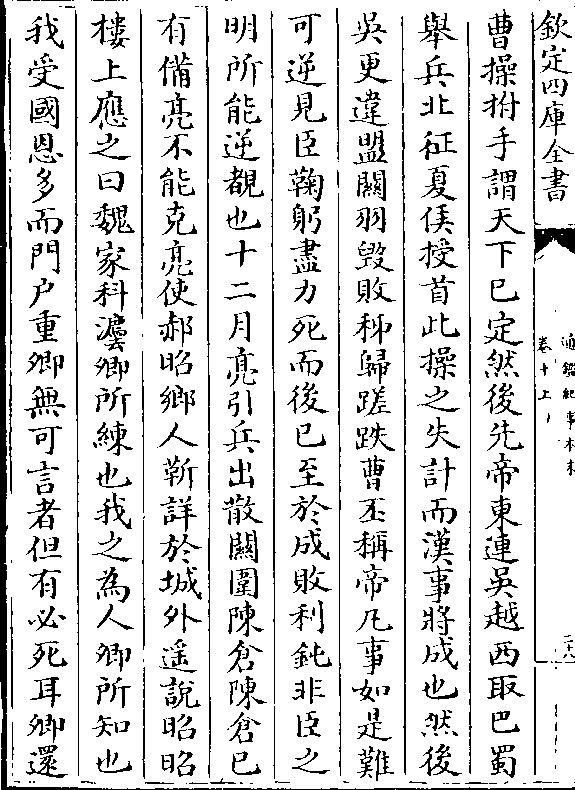 欽定四庫全書
通鑑紀事本末
卷十上
二十八
曹操拊手謂天下已定然後先帝東連吳越西取巴蜀
舉兵北征夏侯授首此操之失計而漢事將成也然後
吳更違盟關羽毀敗秭歸蹉跌曹丕稱帝凡事如是難
可逆見臣鞠躬盡力死而後已至於成敗利鈍非臣之
明所能逆覩也十二月亮引兵出散關圍陳倉陳倉已
有備亮不能克亮使郝昭鄉人靳詳於城外遥說昭昭
樓上應之曰魏家科灋卿所練也我之為人卿所知也
我受國恩多而門户重卿無可言者但有必死耳卿還